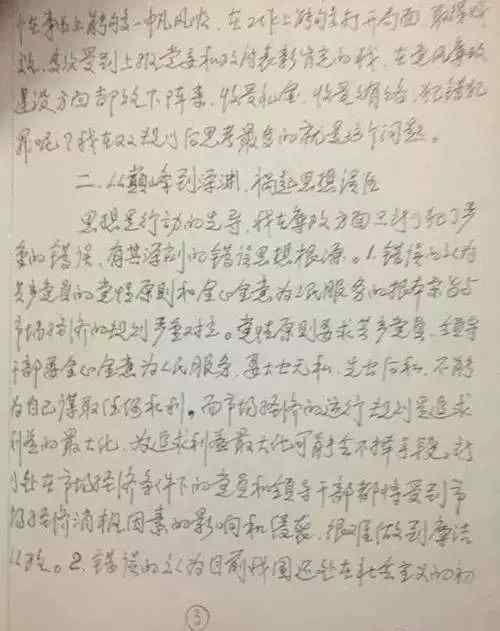 在事业上能够一帆风顺，在工作上能够打开局面，取得成
绩，多次受到上级党委和政府表彰肯定的我，在党风廉政
建设方面却败下阵来，收受礼金、收受贿赂，犯错犯
罪呢？我在双规以后思考最多的就是这个问题。
二、从巅峰到深渊，祸起思想滑坡
思想是行动的先导，我在廉政方面之所以犯了严
重的错误，有其深刻的错误思想根源。1.错误的认为
共产党员的党性原则和全心全意为人民服务的根本宗旨与
市场经济的规则严重对立。党性原则要求共产党员、领导
干部要全心全意为人民服务，要大公无私，先公后私，不能
为自己谋取任何私利。而市场经济的运行规则是追求
利益的最大化，为追求利益最大化可能会不择手段。
处在市场经济条件下的党员和领导干部都将受到市
场经济消极因素的影响和侵袭，很难做到廉洁
从政。2.错误的认为目前我国还处在社会主义的初
3